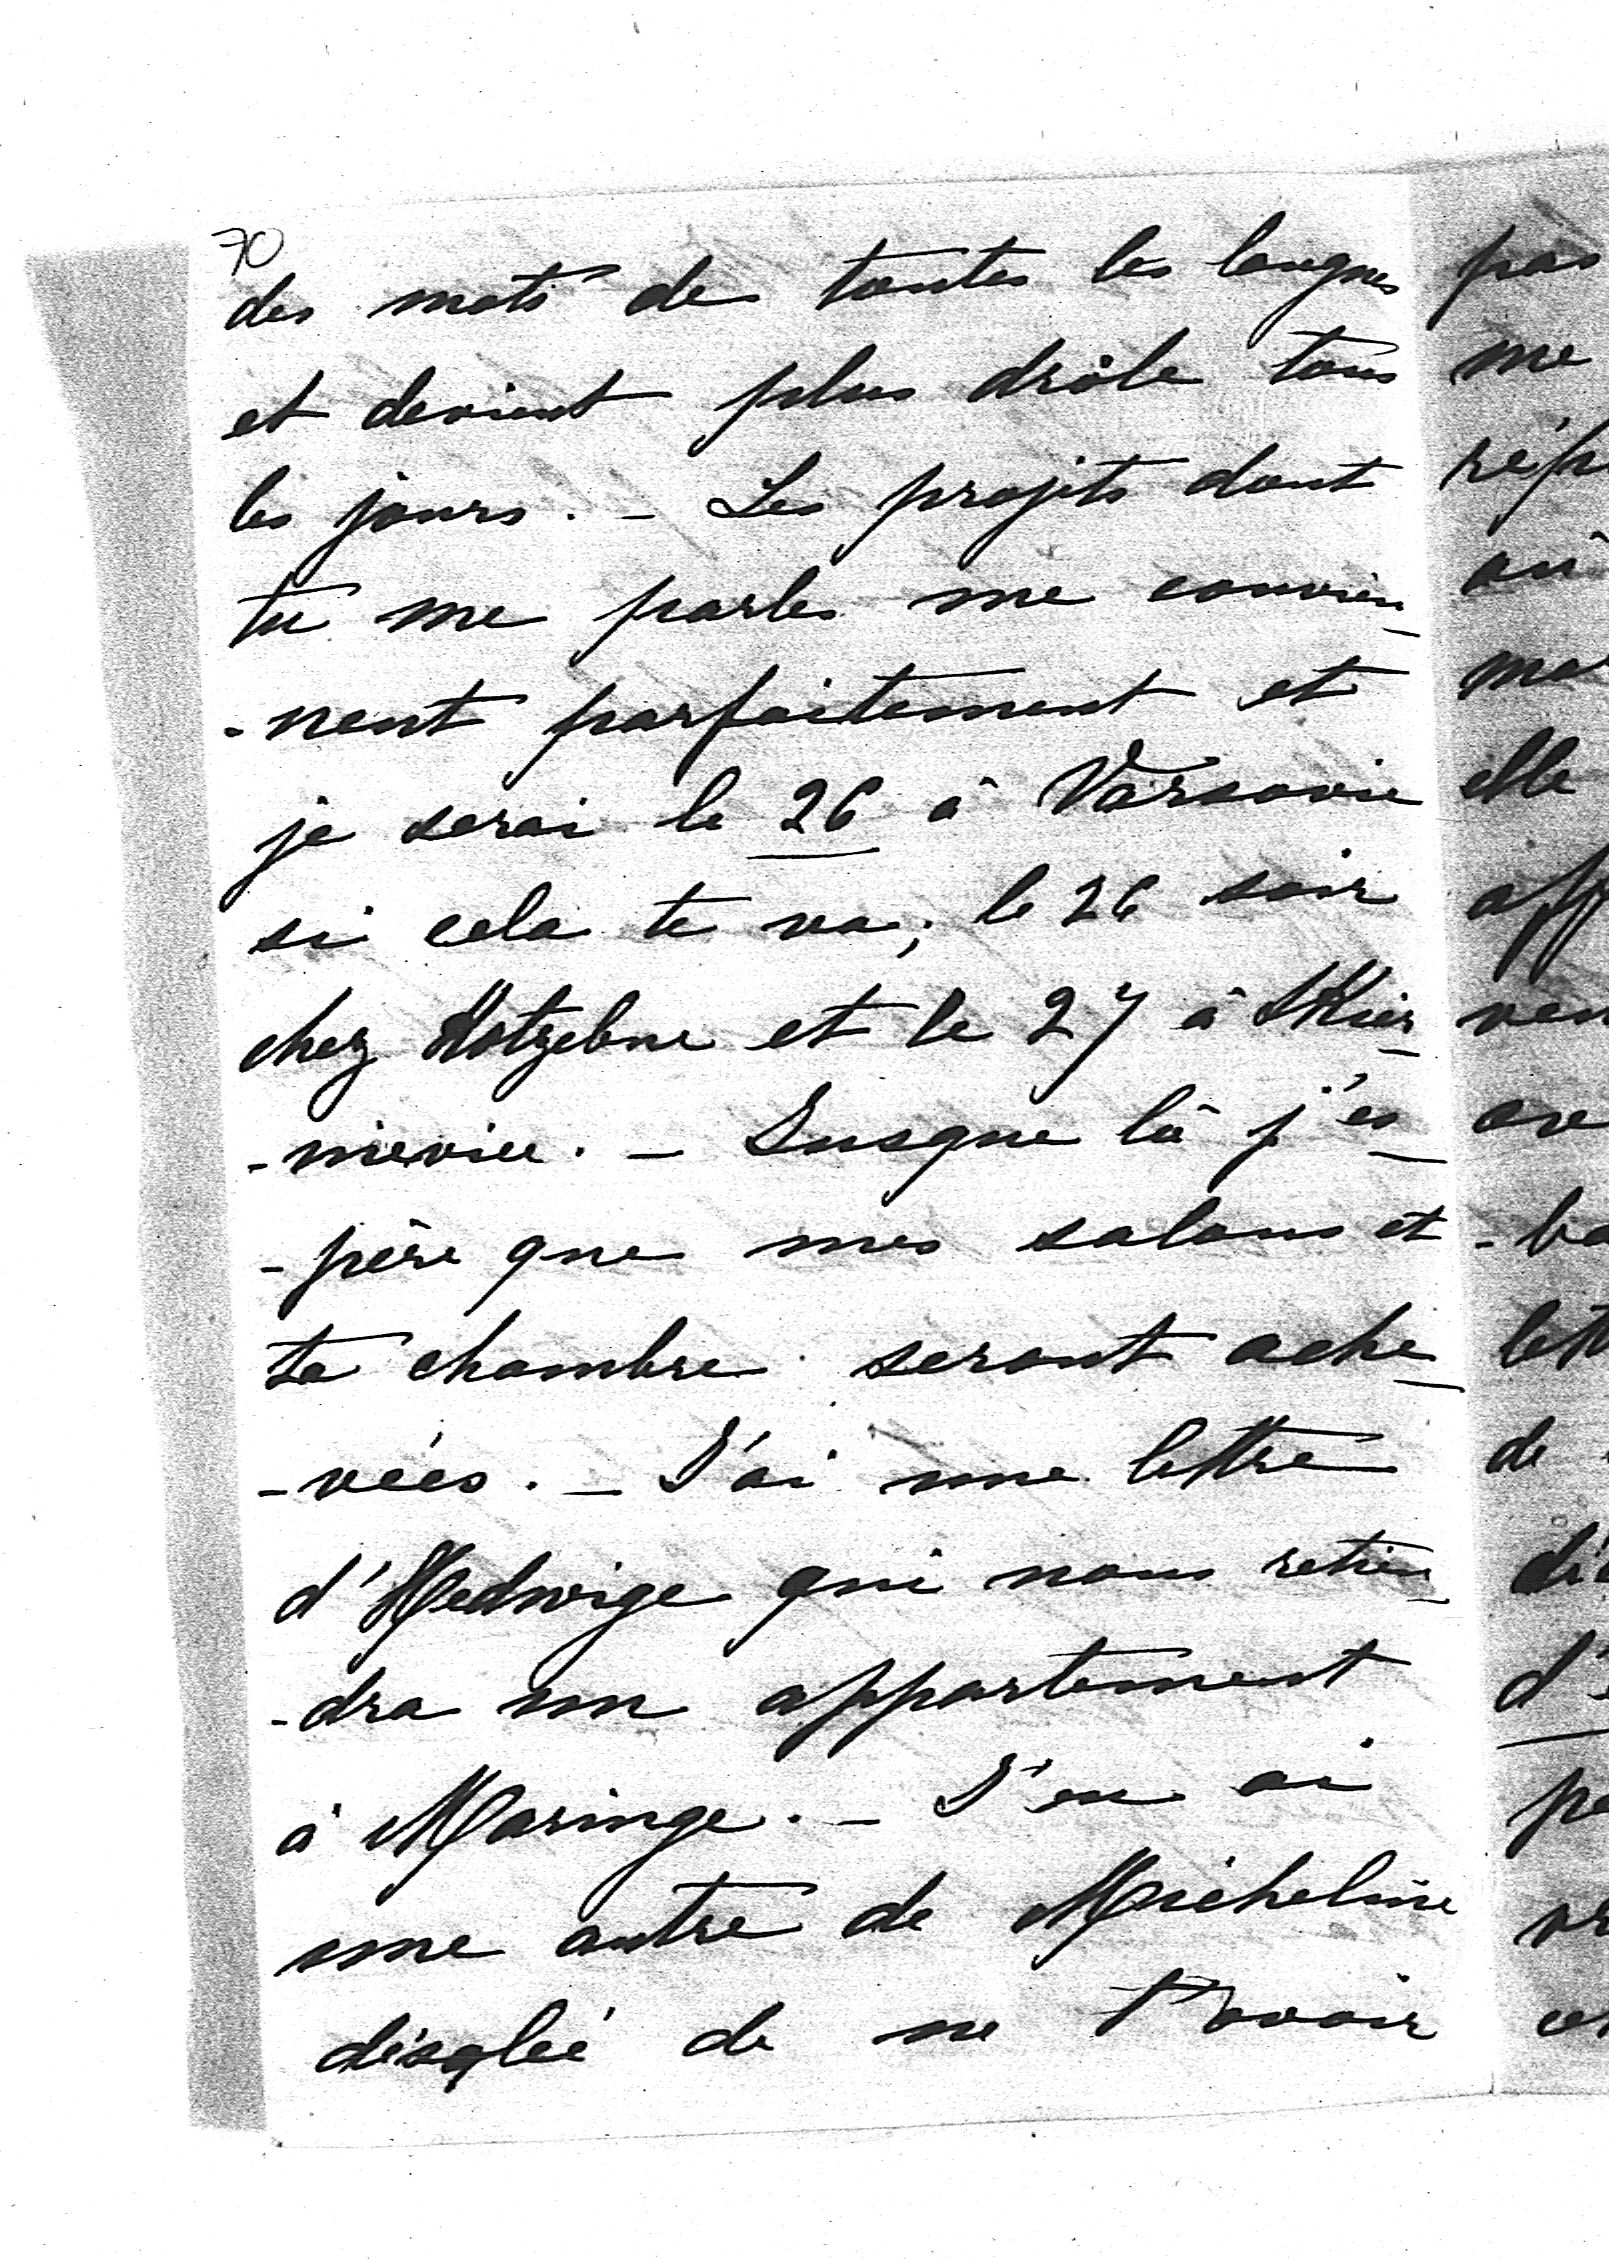 70
des mots de toutes les langues
et devient plus drôle tous
les jours. - Les projets dont
tu me parles me convien-
-nent parfaitement et
je serai le 26 à Varsovie
si cela te va; le 26 soir
chez Kotzebue et le 27 à Skier-
-nievice. - Jusque là j'es-
-père que mes salons et
ta chambre seront ache-
-vées. - J'ai une lettre
d'Hedwige qui nous retien-
-dra un appartement
à Maringe. - J'en ai
une autre de Micheline
désolée de ne t'avoir
pas
me
elle
de